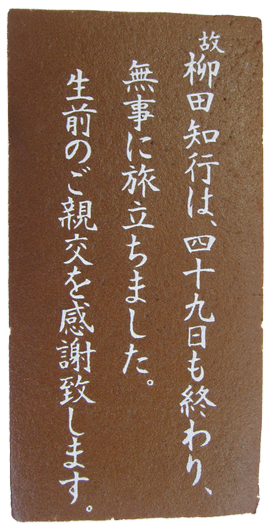 故柳田知行は、四十九日も終わり、
無事に旅立ちました。
生前のご親交を感謝致します。